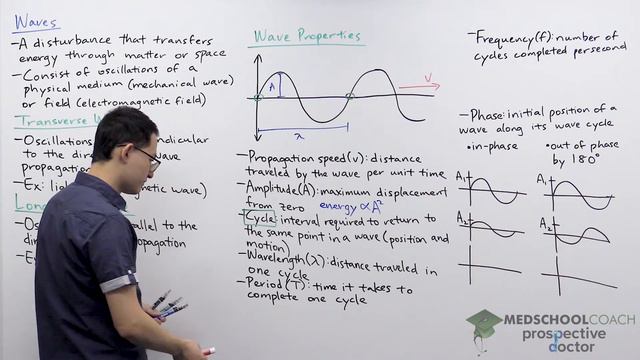 Waves
-A disturbance that transfers
energy through matter or space
-Consist of oscillations of a
physical medium (mechanical wave)
or field (electromagnetic field)
Transverse
-Oscillations
to the
wave
propaga
-Ex: wave)
parallel to the
propagation
Wave Properties
A
v
λ
-Propagation speed(v): distance
traveled by the wave per unit time
-Amplitude(A): maximum displacement
from zero energy ∝ A²
-Cycle: interval required to return to
the same point in a wave (position and
motion)
-Wavelength(λ): distance traveled in
one cycle
-Period(T): time it takes to
complete one cycle
-Frequency(f): number of
cycles completed per second
-Phase: initial position of a
wave along its wave cycle
•in-phase
•out of phase
by 180°
A₁
A₁
A₂
A₂
MEDSCHOOLCOACH
prospective
doctor